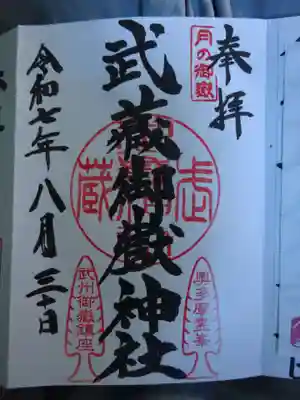 奉拝
月の御嶽
武蔵御嶽神社
奥多摩五峯
武州御嶽講座
令和七年八月三十日